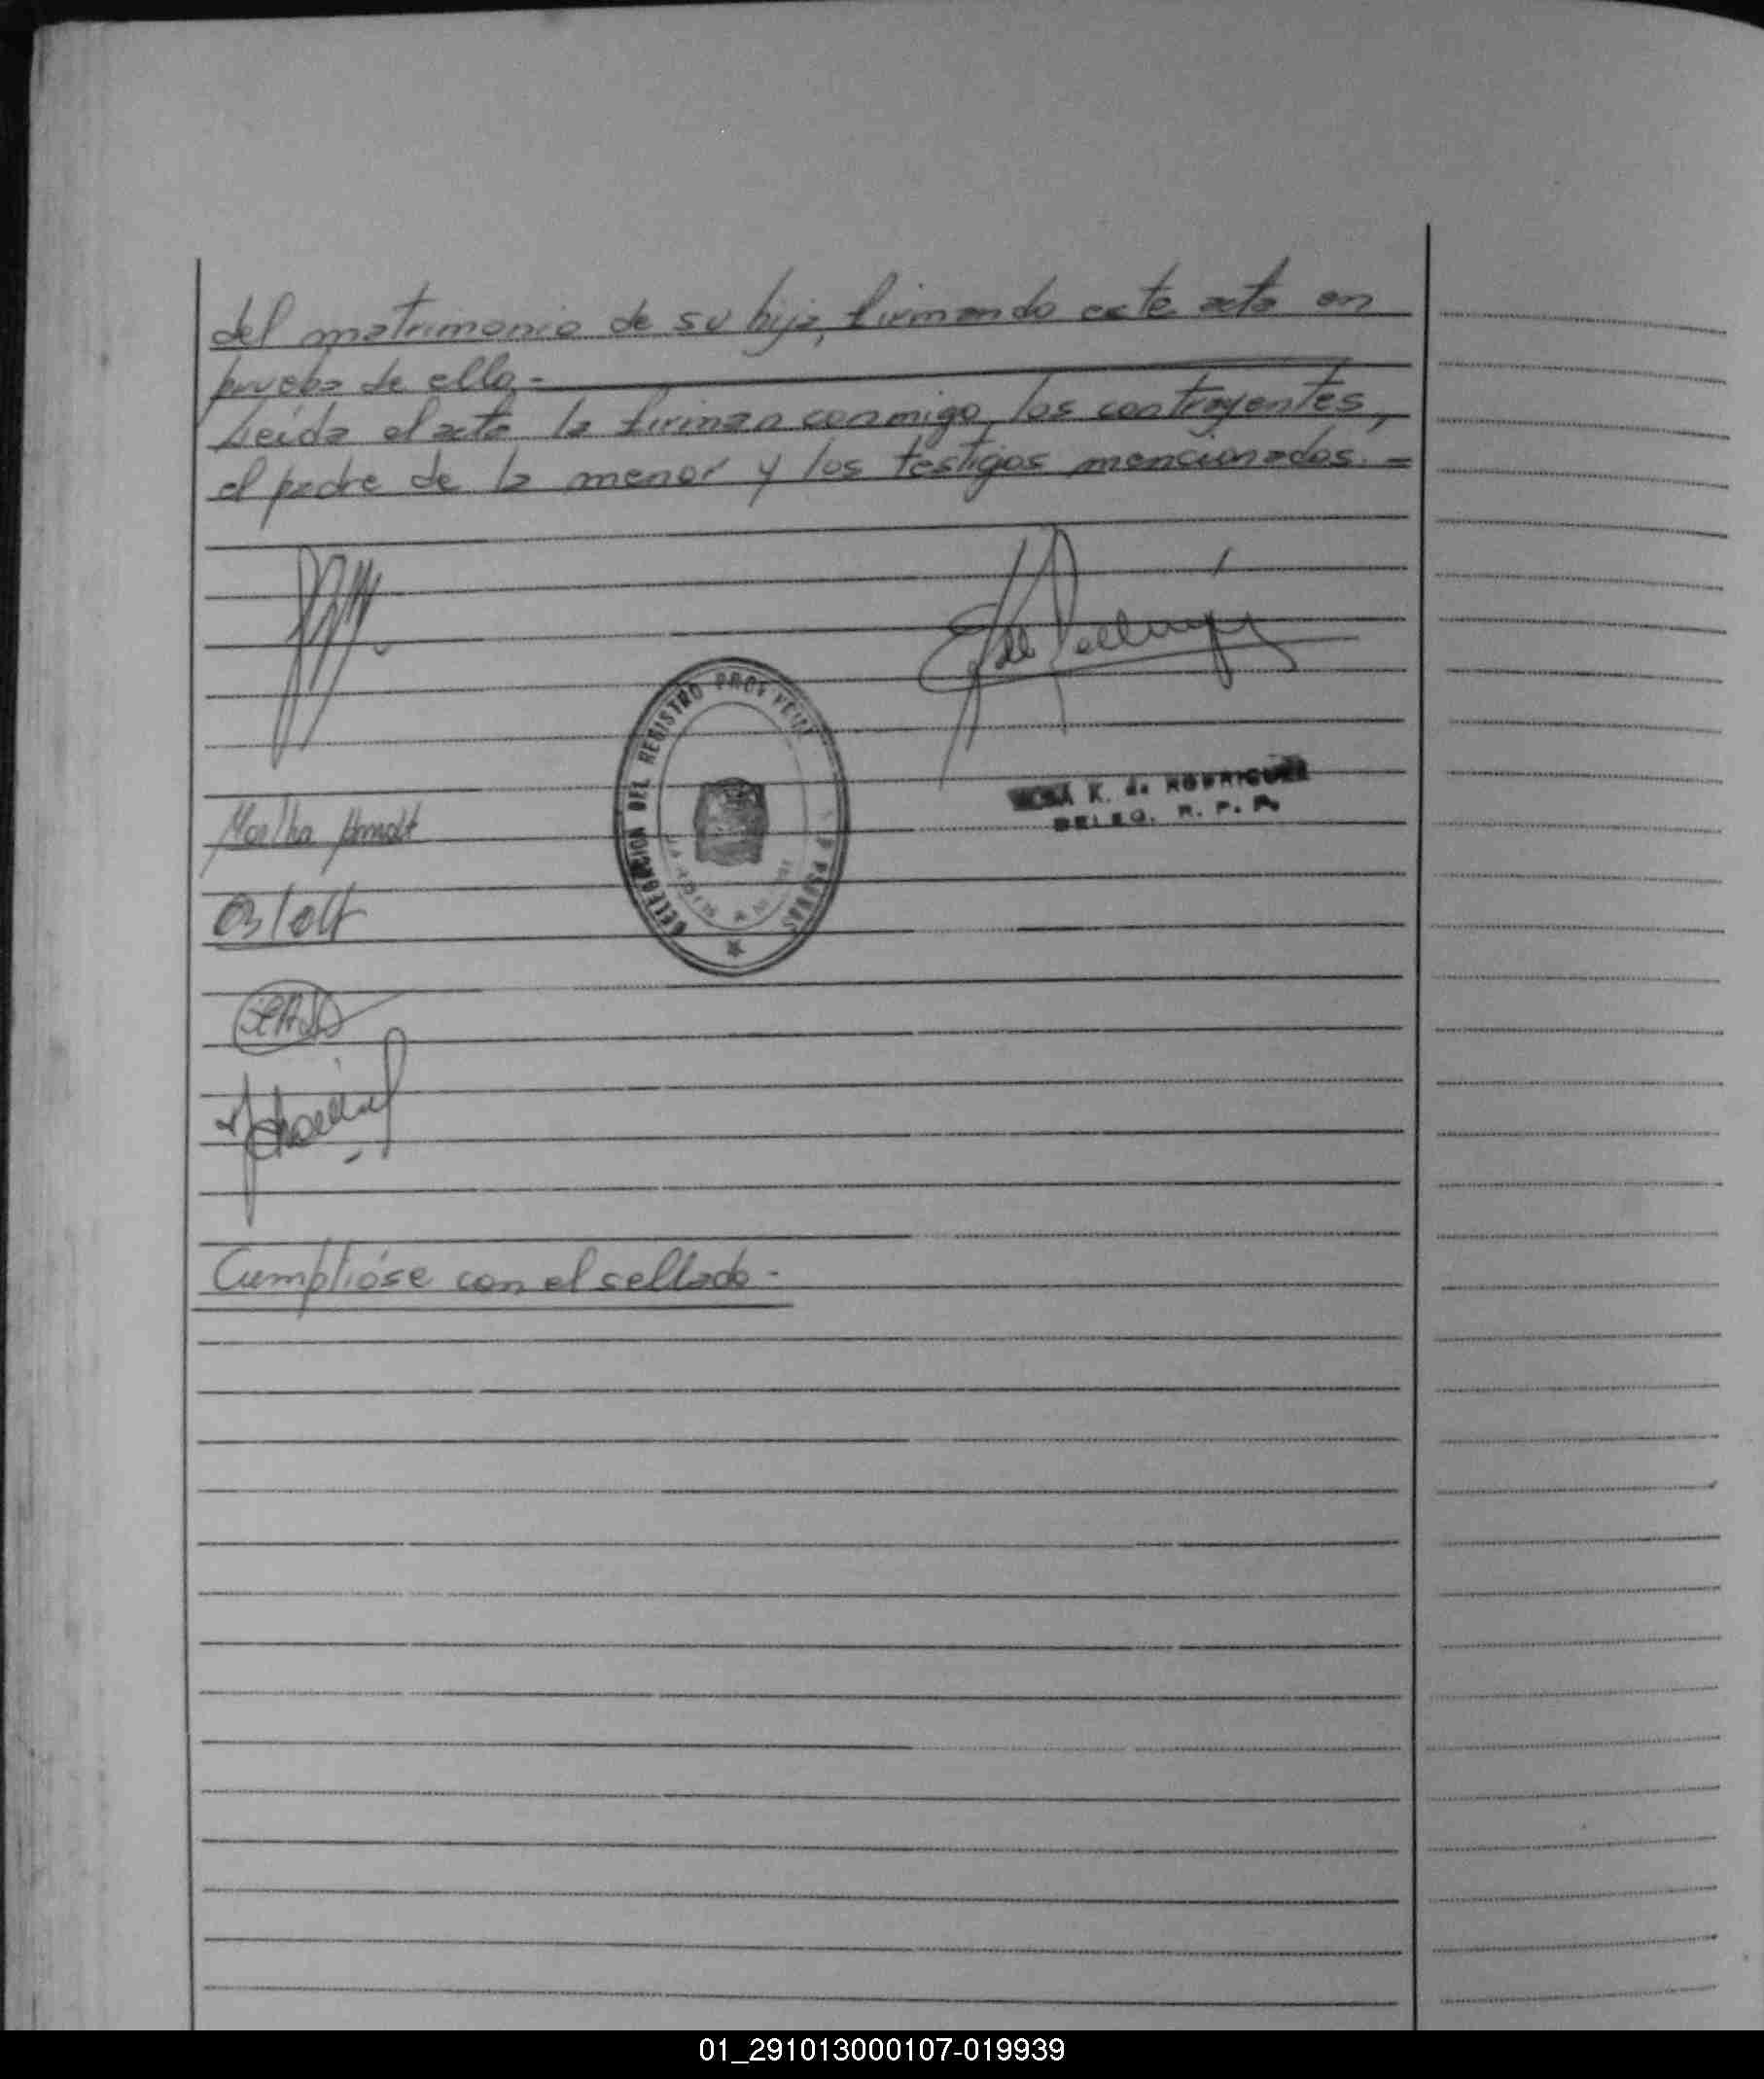 del matrimonio de su hija, firmando este acta en
prueba de ello.-
Leída el acta la firman conmigo, los contrayentes,
el padre de la menor y los testigos mencionados.=
DELEGACION DEL REGISTRO PROV
DE LAS PERSONAS
K. de RODRIGUEZ
DELEG. R. P. P.
Martha
Cumplióse con el sellado.-
01_291013000107-019939